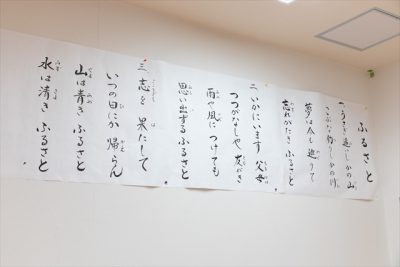 ふるさと
一 うさぎ追いし かの山
こぶな釣りし かの川
夢は今も 巡りて
忘れがたき ふるさと
二 いかにいます 父母
つつがなしや 友がき
雨や風に つけても
思い出ずる ふるさと
三 志を 果たして
いつの日にか 帰らん
山は青き ふるさと
水は清き ふるさと